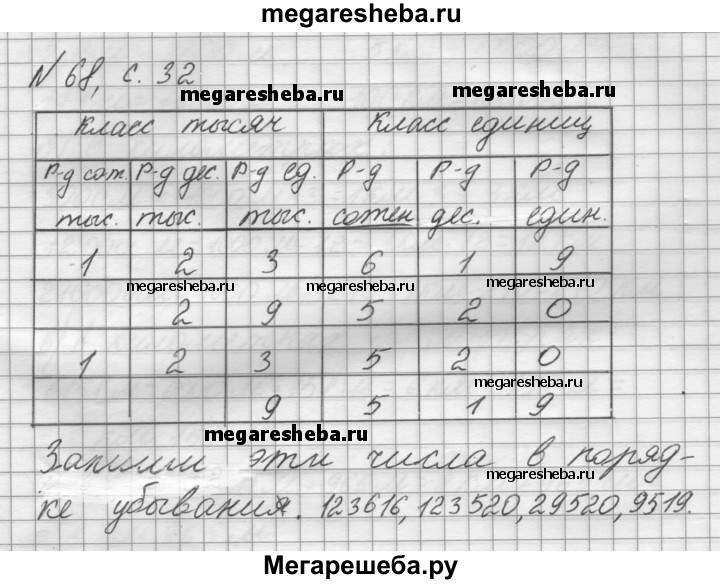 megaresheba.ru
N 68, с. 32
megaresheba.ru megaresheba.ru
Класс тысяч Класс единиц
Р-д сот. Р-д дес. Р-д ед. Р-д Р-д Р-д
тыс. тыс. тыс. сотен дес. един.
1 2 3 6 1 9
megaresheba.ru megaresheba.ru megaresheba.ru
2 9 5 2 0
1 2 3 5 2 0
megaresheba.ru
9 5 1 9
megaresheba.ru
Запиши эти числа в поряд-
megaresheba.ru
ке убывания. 123616, 123520, 29520, 9519.
Мегарешеба.ру